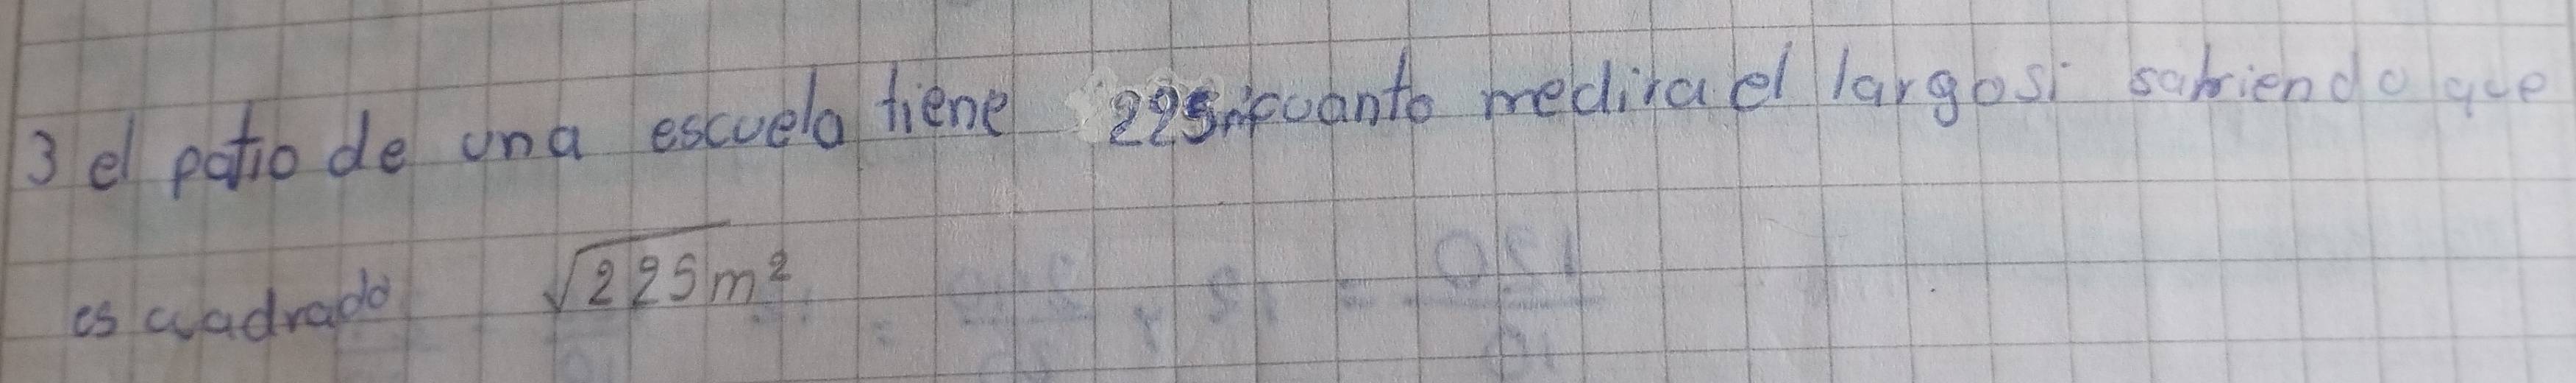 3 el patio de una escuela tiene 225m cuanto medira el largo si sabiendo que
es cuadrado √225m²